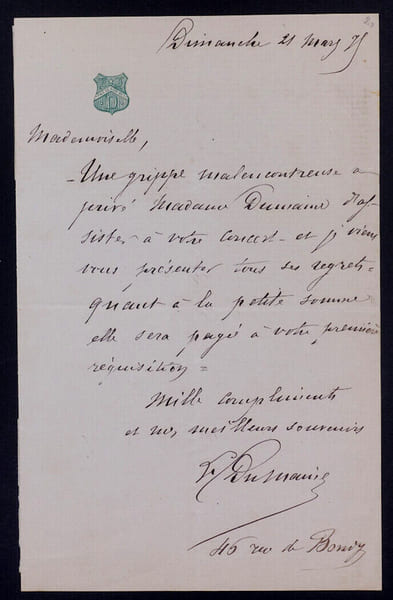 Dimanche 21 Mars 75
Mademoiselle,
- Une grippe malencontreuse a
privé Madame Dumaine d'as-
sister à votre concert - et je viens
vous présenter tous ses regrets -
quant à la petite somme
elle sera payée à votre première
réquisition =
Mille compliments
et mes meilleurs souvenirs
Dumaine
46 rue de Bondy